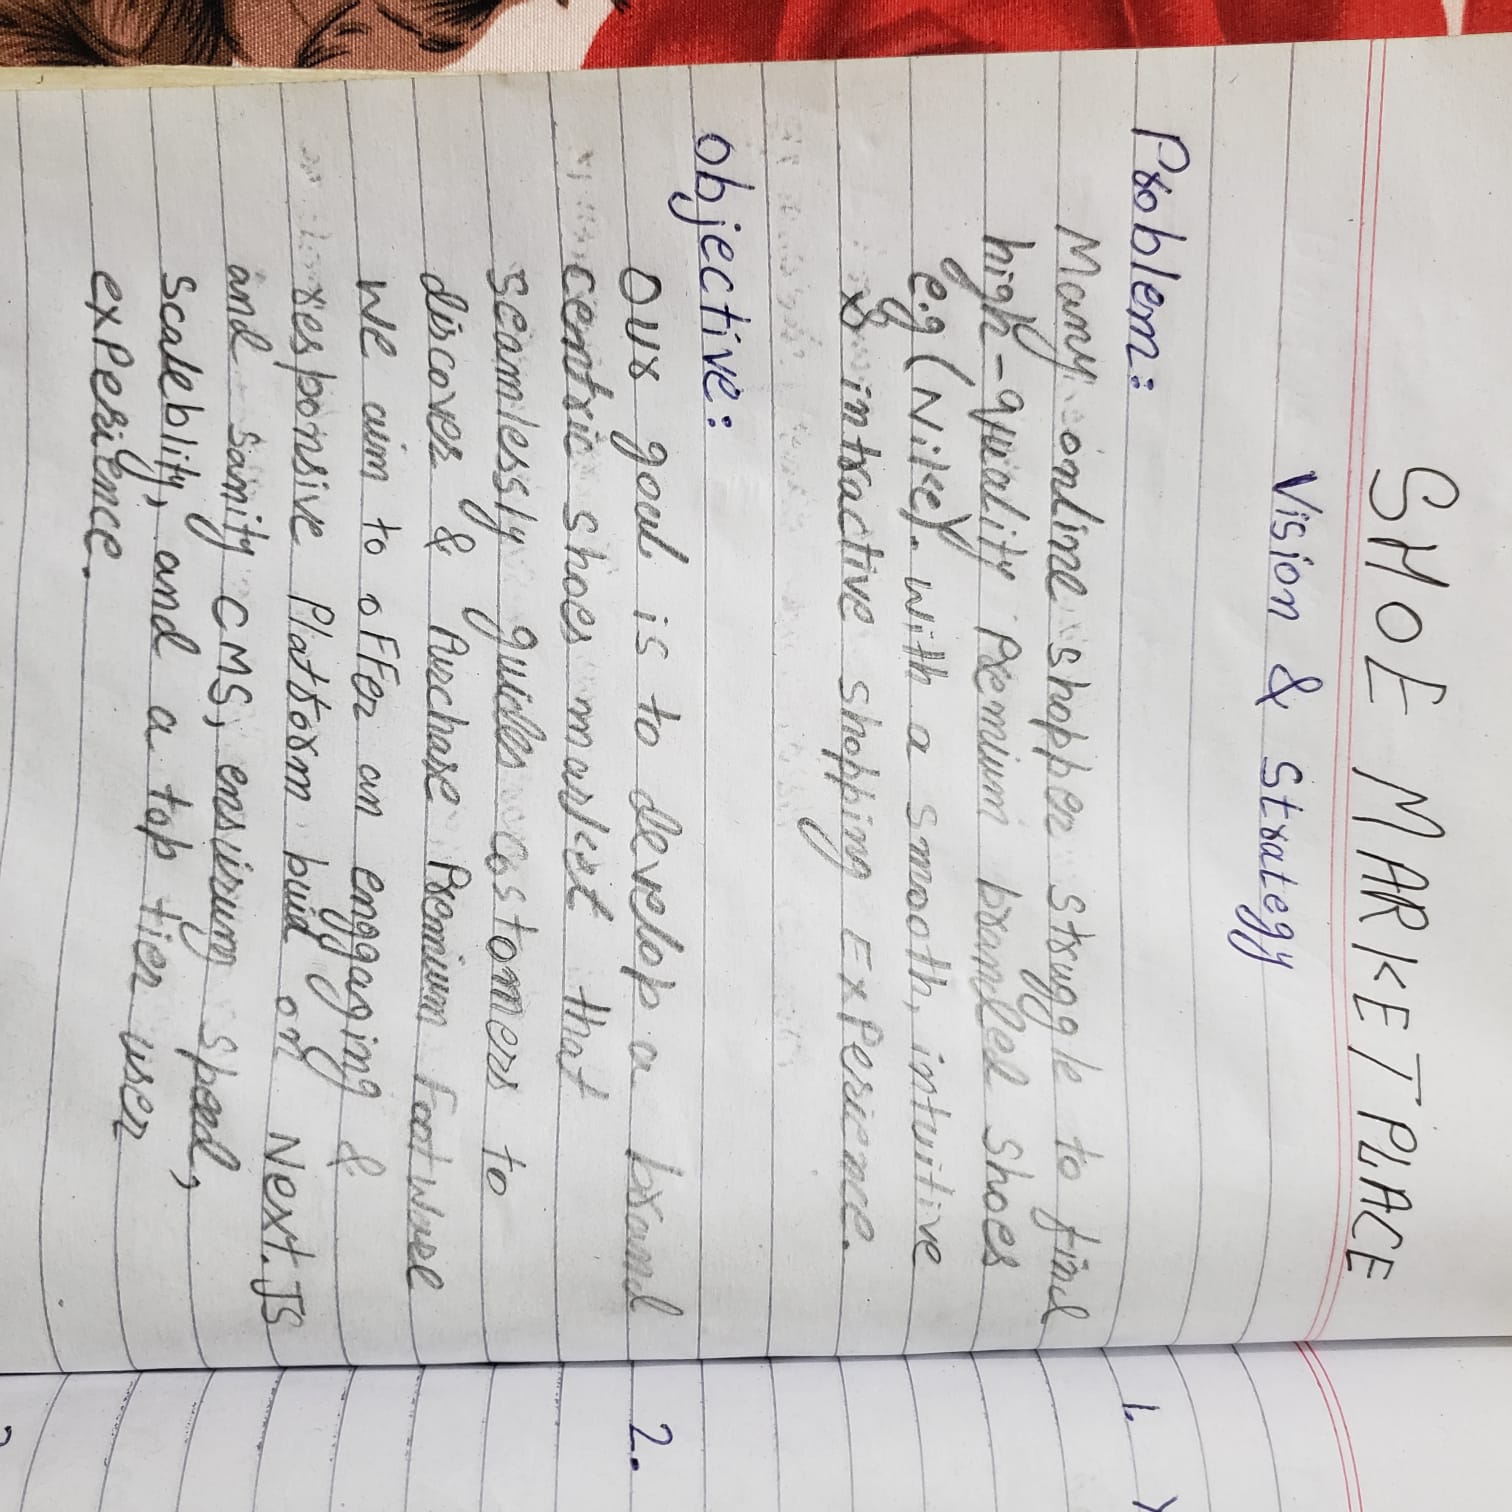 SHOE MARKETPLACE
Vision & Strategy
Problem:
Many online shopper struggle to find
high-quality Premium branded shoes
e.g (Nike). with a smooth, intuitive
& intractive shopping Experience.
objective:
our goal is to develop a brand
centric shoes market that
seamlessly guides costomers to
discover & Purchase Premium Footware
we aim to offer an enggaging &
responsive Platform buid on Next.JS
and Sanity CMS, ensurung speed,
scaleblity, and a top tier user
experience.
1.
2.